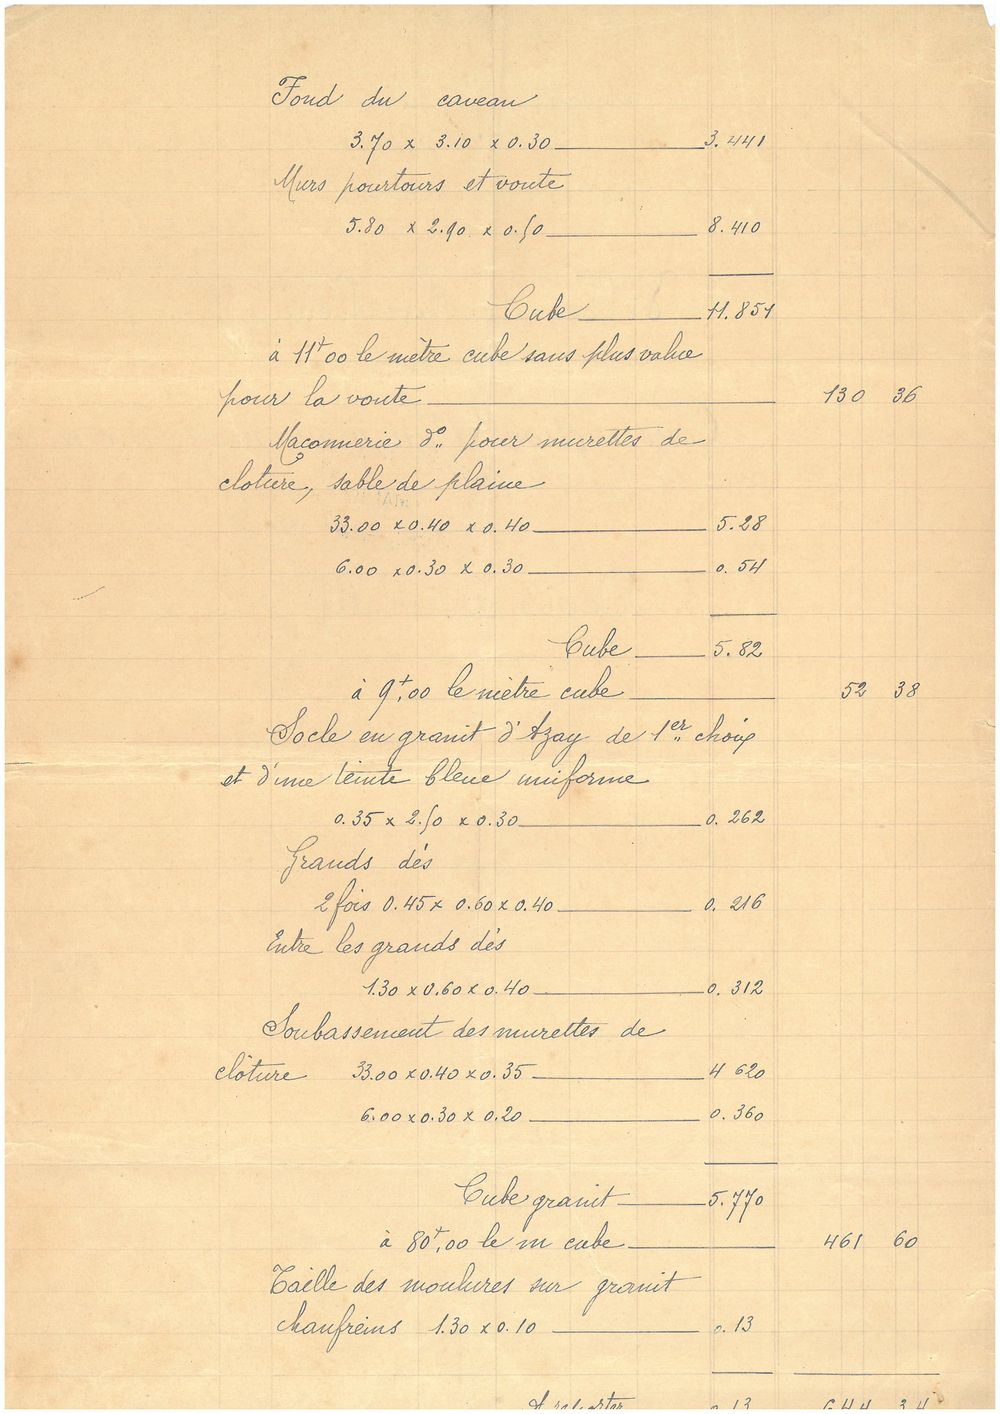 Fond du caveau
3.70 x 3.10 x 0.30 3.441
Murs pourtours et voute
5.80 x 2.90 x 0.50 8.410
Cube 11.851
à 11f00 le mètre cube sans plus value
pour la voute 130 36
Maçonnerie do pour murettes de
cloture, sable de plaine
33.00 x 0.40 x 0.40 5.28
6.00 x 0.30 x 0.30 0.54
Cube 5.82
à 9f,00 le mètre cube 52 38
Socle en granit d'Azay de 1er choix
et d'une teinte bleue uniforme
0.35 x 2.50 x 0.30 0.262
Grands dés
2 fois 0.45 x 0.60 x 0.40 0.216
Entre les grands dés
1.30 x 0.60 x 0.40 0.312
Soubassement des murettes de
clôture 33.00 x 0.40 x 0.35 4 620
6.00 x 0.30 x 0.20 0.360
Cube granit 5.770
à 80f,00 le m cube 461 60
Taille des moulures sur granit
chanfreins 1.30 x 0.10 0.13
A reporter 0.13 644 34